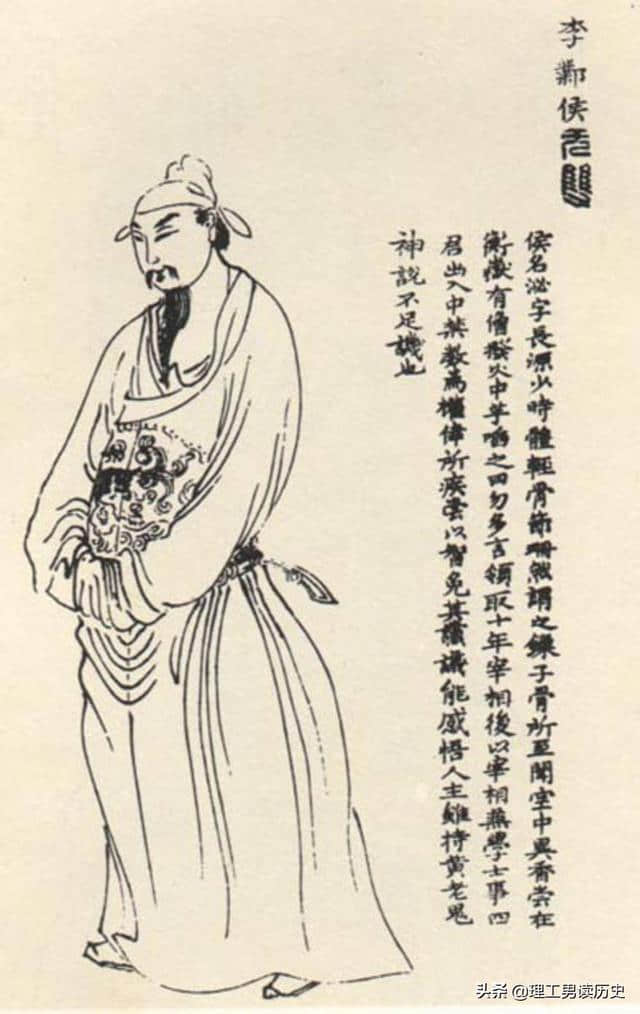 李鄴侯
无雙
侯名泌字長源少時體輕骨節珊然謂之鏁子骨所至聞空中異香嘗在
衡嶽有僧撥火中芋啗之曰勿多言領取十年宰相後以宰相兼學士事四
君出入中禁數為權倖所疾常以智免其讜議能感悟人主雖持黃老鬼
神說不足譏也
头条 @理工男读历史